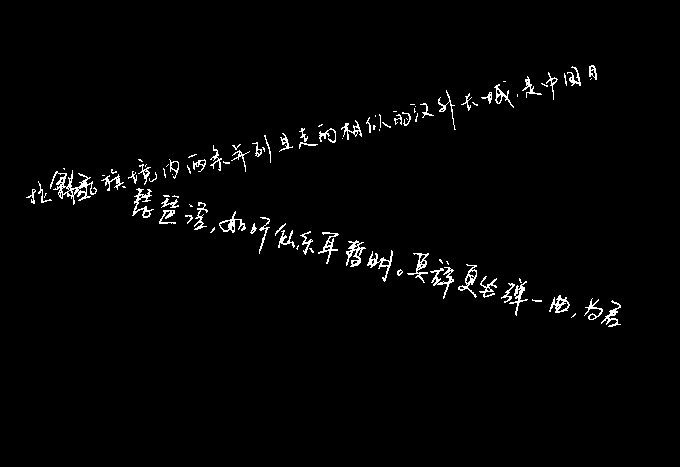 拉特旗境内两条并列且走的相似的汉外长城,是中国目
琵琶语,如听仙乐耳暂明。莫辞更坐弹一曲,为君